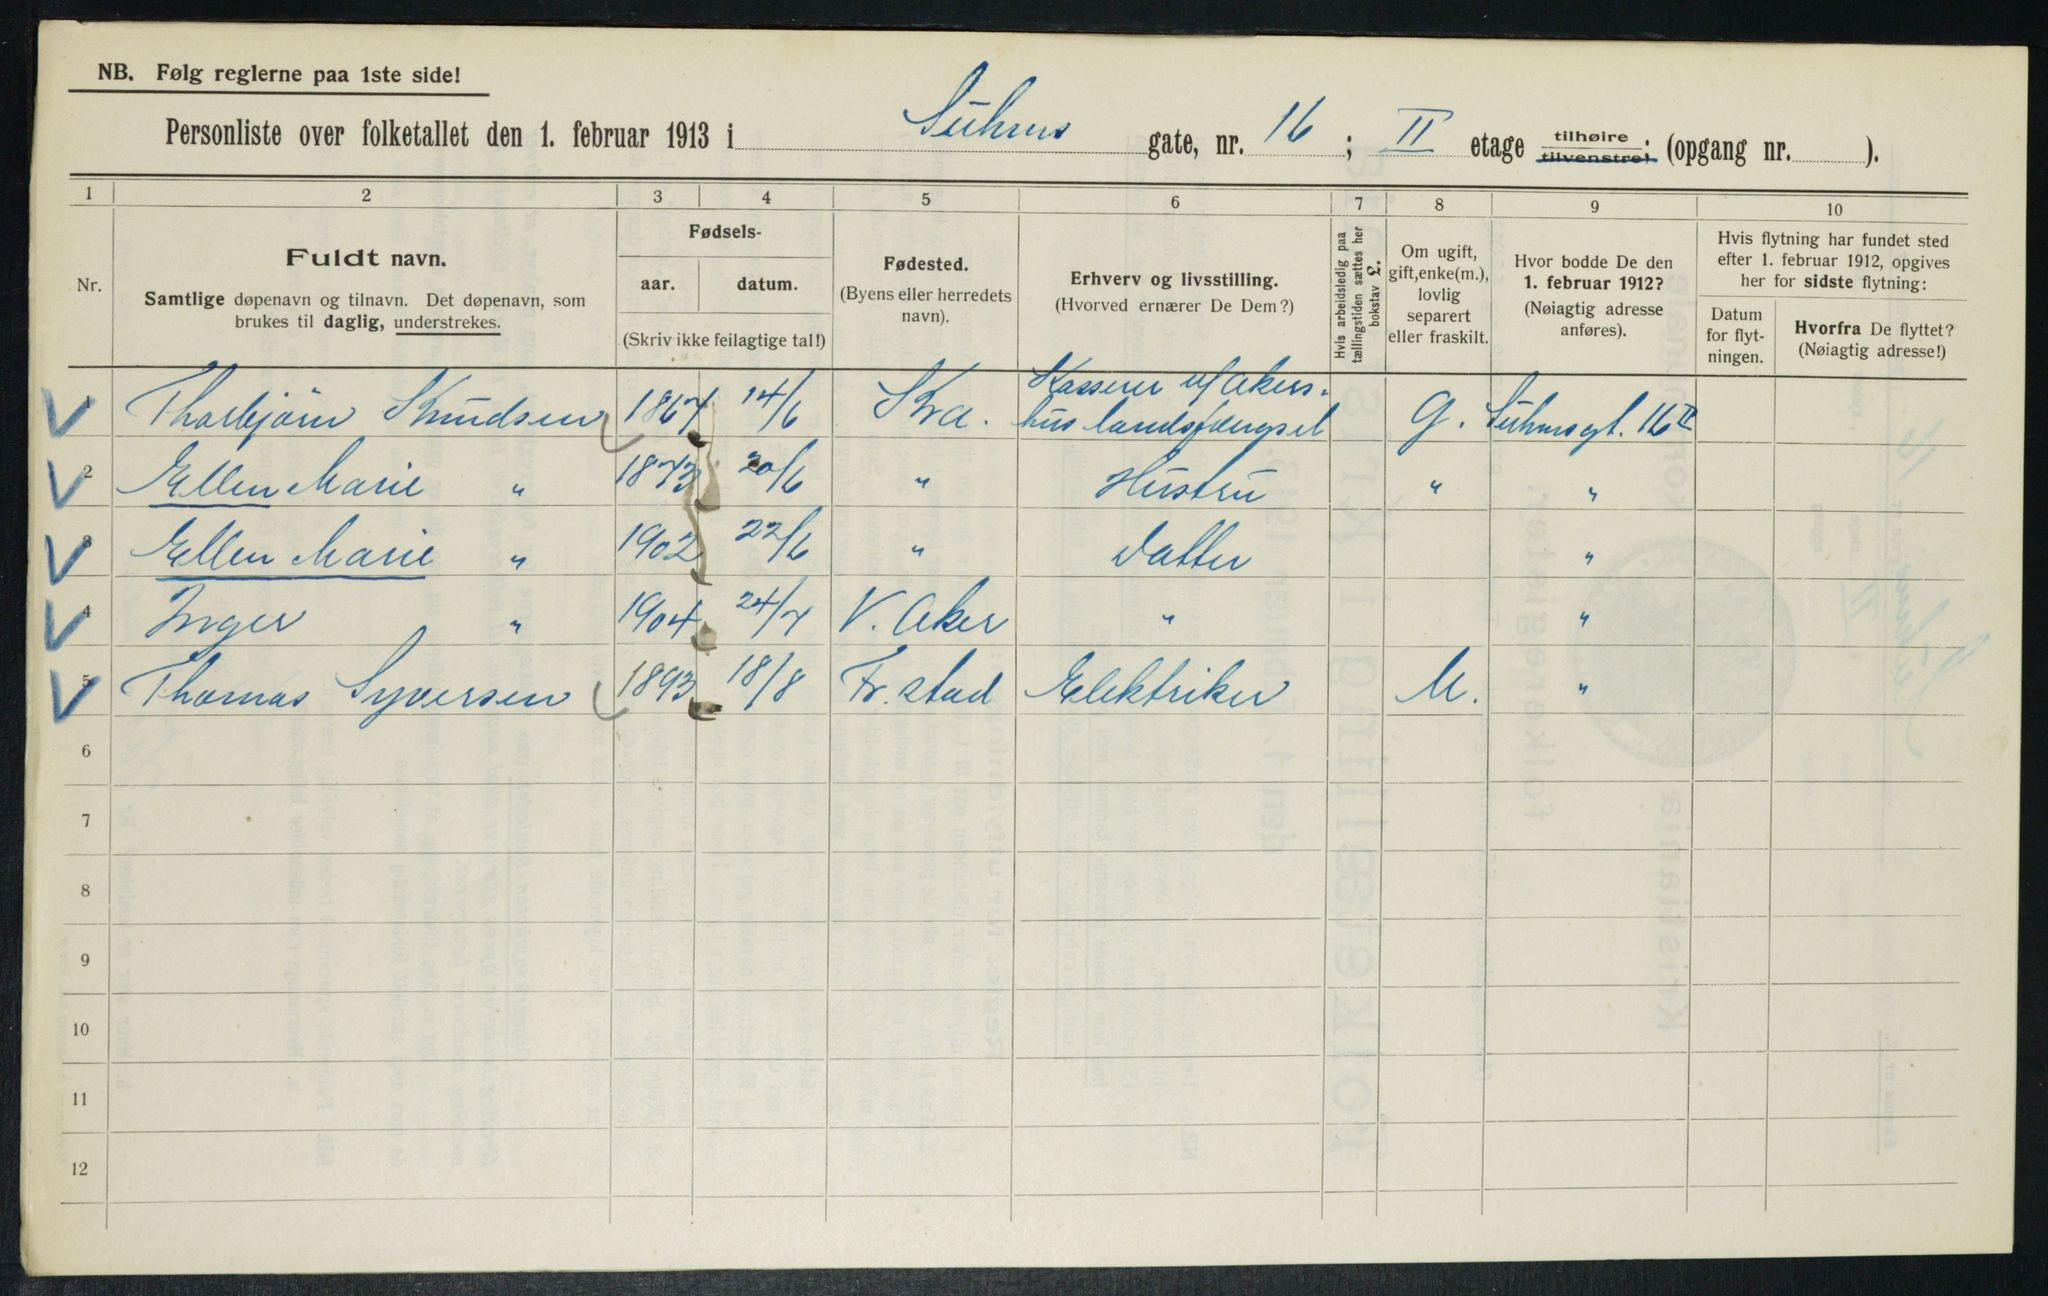 NB. Følg reglerne paa 1ste side!
Personliste over folketallet den 1. februar 1913 i Suhms gate, nr. 16; II etage tilhøire tilvenstre; (opgang nr. ).
1 2 3 4 5 6 7 8 9 10
Nr.
Fuldt navn.
Samtlige døpenavn og tilnavn. Det døpenavn, som
brukes til daglig, understrekes.
Fødsels-
aar. datum.
(Skriv ikke feilagtige tal!)
Fødested.
(Byens eller herredets
navn).
Erhverv og livsstilling.
(Hvorved ernærer De Dem?)
Hvis arbeidsledig paa
tællingstiden sættes her
bokstav L.
Om ugift,
gift, enke(m.),
lovlig
separert
eller fraskilt.
Hvor bodde De den
1. februar 1912?
(Nøiagtig adresse
anføres).
Hvis flytning har fundet sted
efter 1. februar 1912, opgives
her for sidste flytning:
Datum
for flyt-
ningen.
Hvorfra De flyttet?
(Nøiagtig adresse!)
1 Thorbjörn Knudsen 1867 14/6 Kra. Kasserer v/ Akers-
hus landsfængsel G. Suhmsgt. 16 II
2 Ellen Marie " 1873 20/6 " Hustru " "
3 Ellen Marie " 1902 22/6 " Datter "
4 Inger " 1904 24/7 V. Aker " "
5 Thomas Syversen 1893 18/8 Fr.stad Elektriker U. "
6
7
8
9
10
11
12